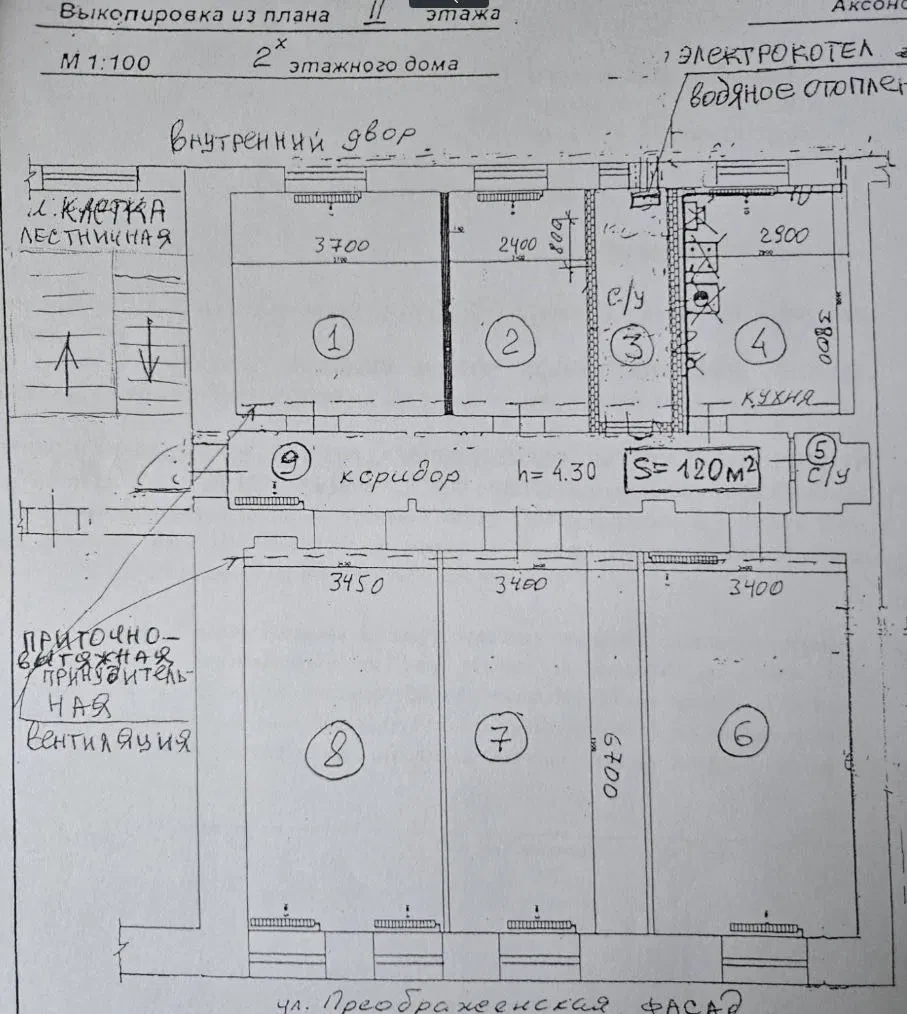 Выкопировка из плана II этажа
М 1:100 2х этажного дома
ЭЛЕКТРОКОТЕЛ
ВОДЯНОЕ ОТОПЛЕН
ВНУТРЕННИЙ ДВОР
Л. КЛЕТКА
ЛЕСТНИЧНАЯ
3700
2400
800
2900
С/У
1
2
3
4
3800
КУХНЯ
9
коридор
h= 4.30
S= 120 м²
5
С/У
3450
3400
3400
ПРИТОЧНО-
ВЫТЯЖНАЯ
ПРИНУДИТЕЛЬ-
НАЯ
ВЕНТИЛЯЦИЯ
8
7
6
6700
ул. Преображенская ФАСАД